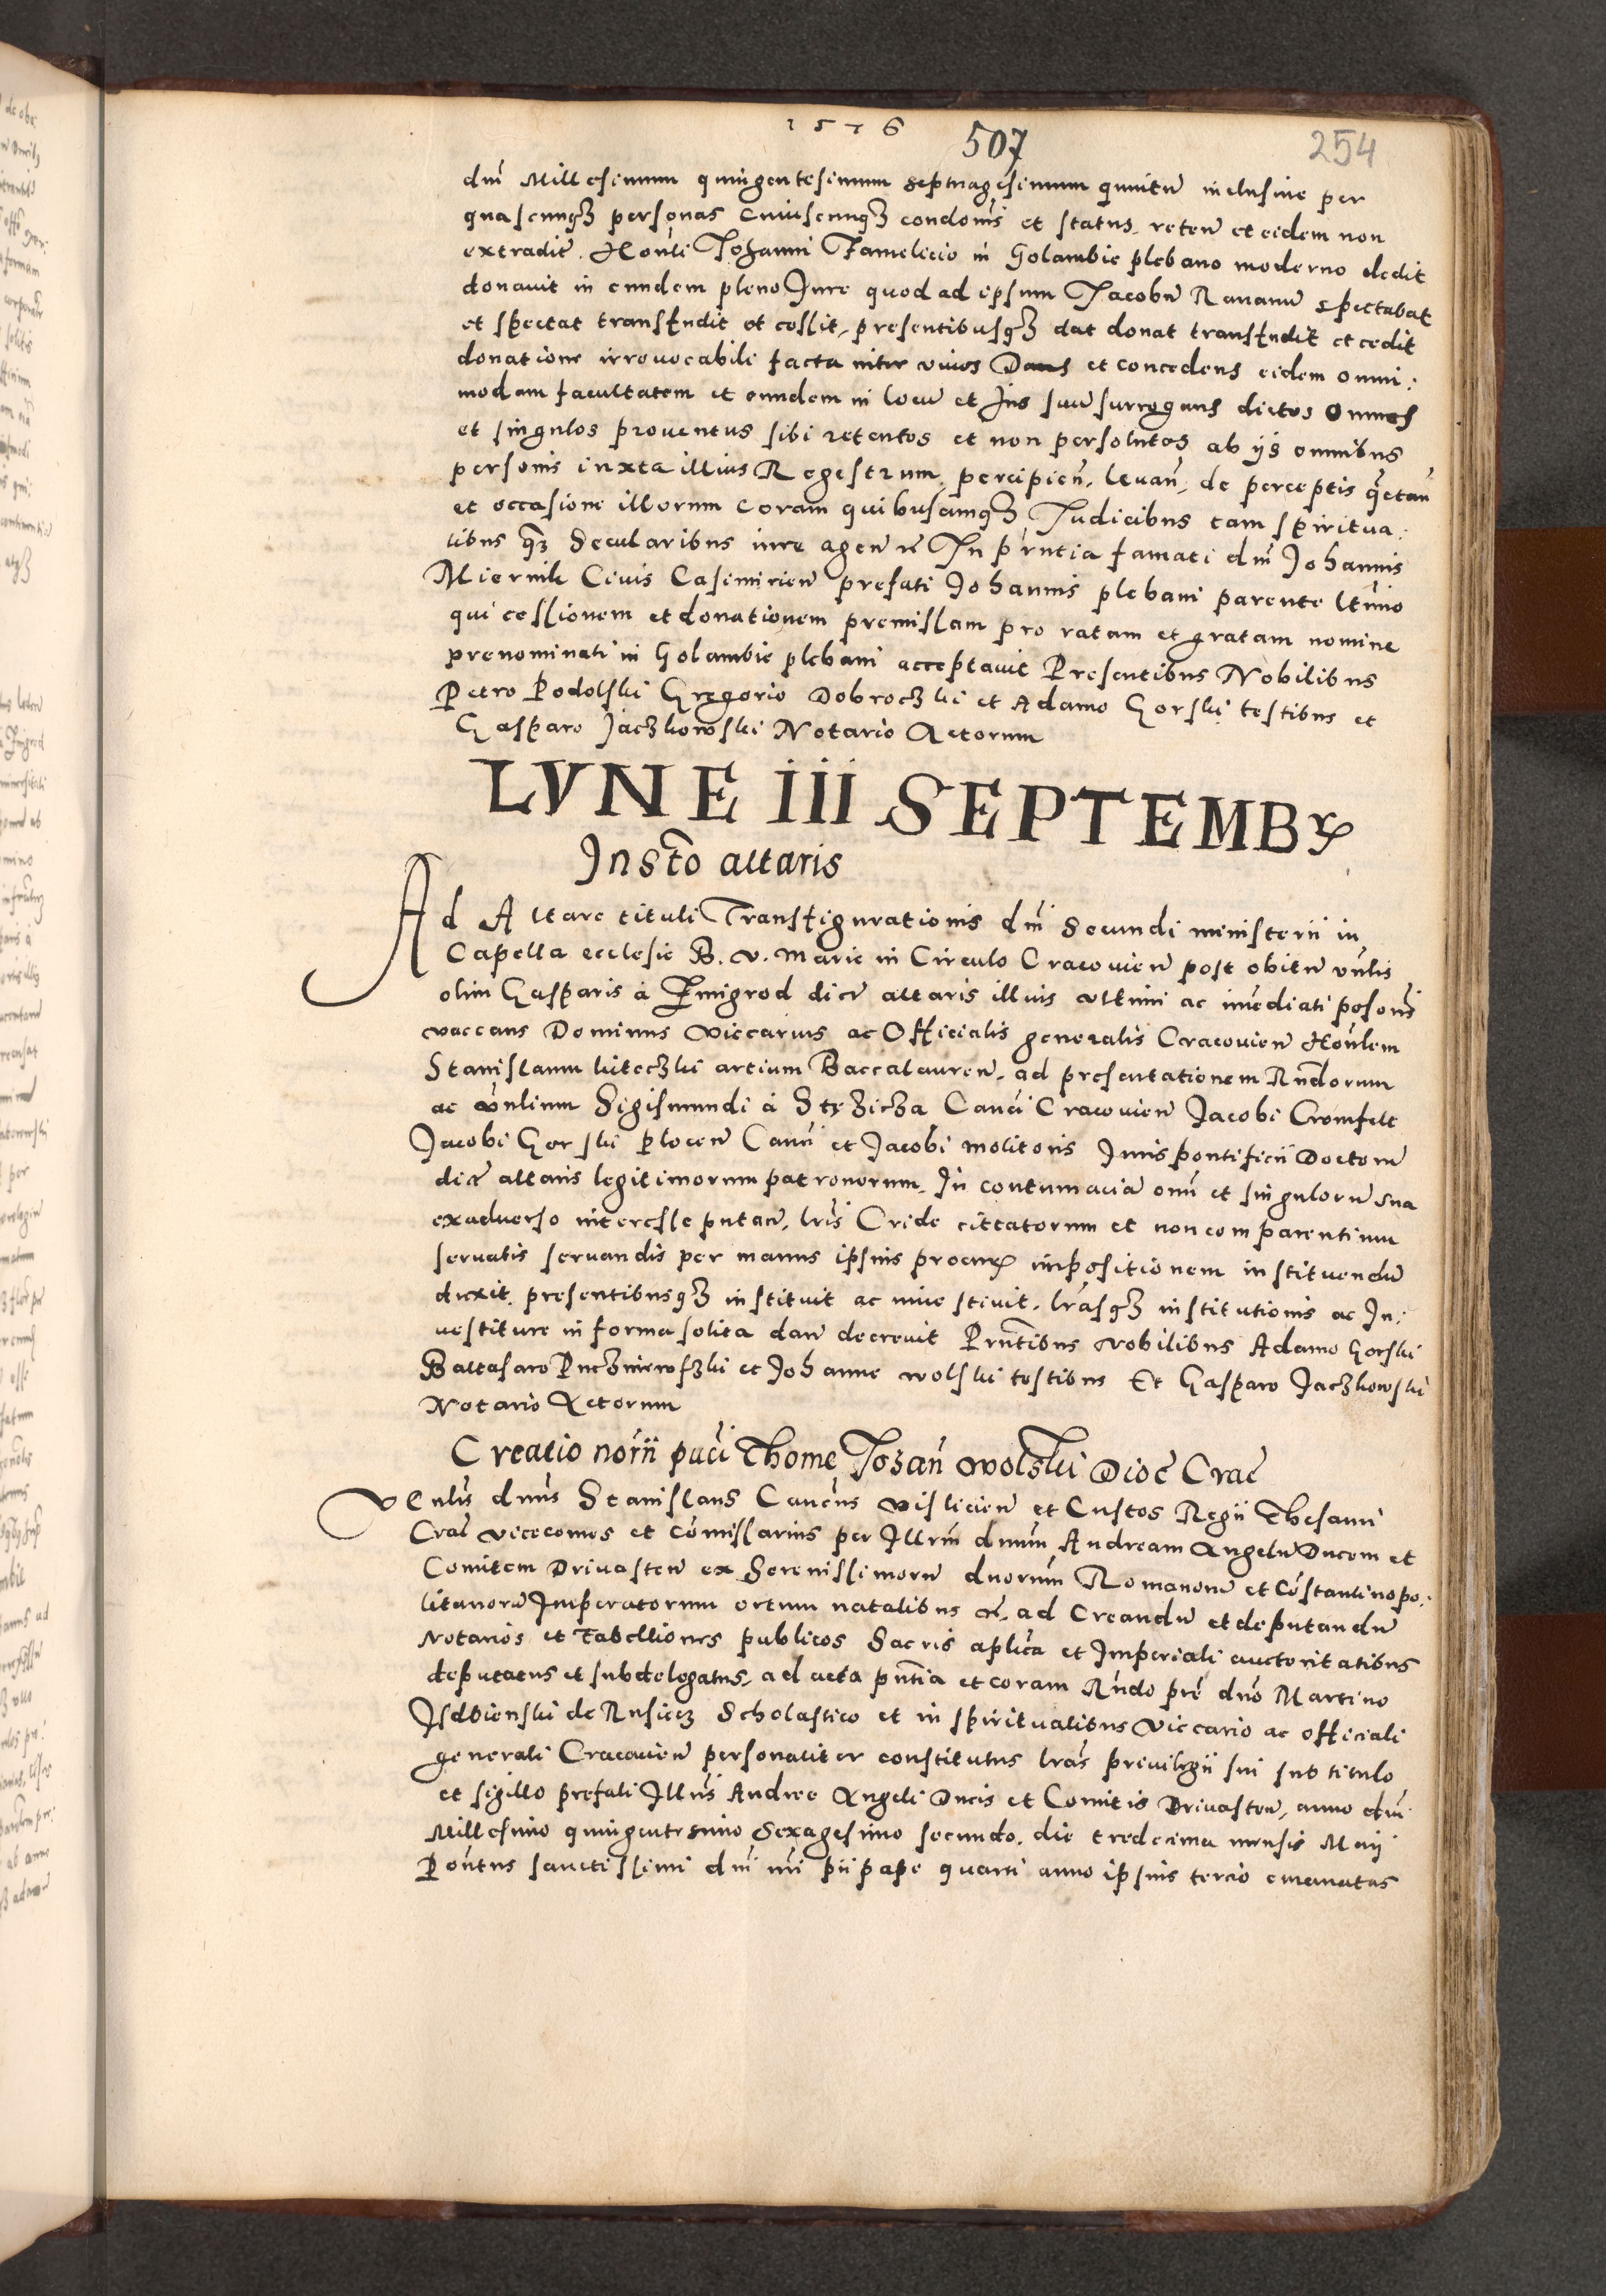 1576
507
254
dni Millesimum quingentesimum septuagesimum quintu inclusiue per
quascunqz personas cuiuscunqz condonis et status, reten et eidem non
extradit. Honli Johanni Famelicio in Golambie plebano moderno dedit
donauit in eundem pleno Jure quod ad ipsum Jacobu Rananu spectabat
et spectat transfudit et cessit, presentibusqz dat donat transfudit et cedit
donatione irreuocabili facta inter viuos Dans et concedens eidem omni:
modam facultatem et eundem in locu et Jus suu surrogans dictos Omnes
et singulos prouentus sibi retentos et non persolutos ab ijs omnibus
personis iuxta illius Regestrum, percipien, leuan, de perceptis qetan
et occasione illorum coram quibuscunqz Judicibus tam spiritua:
libus qz Secularibus iure agen rc In pruntia famati dni Johannis
Miernik Ciuis Casimirien prefati Johannis plebani parente ltimo
qui cessionem et donationem premissam pro ratam et gratam nomine
prenominati in Golambie plebani acceptauit Presentibus Nobilibus
Petro Podolski Gregorio Dobroczki et Adamo Gorski testibus et
Gasparo Jaczkowski Notario Actorum
LVNE III SEPTEMBR
Insto altaris
Ad Altare tituli Transfigurationis dni Secundi ministerii in
Capella ecclesie B. V. Marie in Circulo Cracouien post obitu vnlis
olim Gasparis à Zmigrod dict altaris illius vltimi ac imediati posoris
vaccans Dominus Viccarius ac Officialis generalis Cracouien Honlem
Stanislaum kiteczki artium Baccalaureu, ad presentationem Rndorum
ac vnlium Sigismundi à Stezicza Canci Cracouien Jacobi Cromfelt
Jacobi Gorski Plocen Canci et Jacobi molitoris Juris pontificii Doctoru
dict altaris legitimorum patronorum, In contumacia oniu et singuloru sua
exaduerso interesse putan, lris Cride cittatorum et non comparentium
seruatis seruandis per manus ipsius procur impositionem instituendu
duxit, presentibusqz instituit ac inuestiuit, lrasqz institutionis ac In:
uestiture in forma solita dan decreuit Prntibus Nobilibus Adamo Gorski
Baltasaro Puczniewski et Johanne wolski testibus Et Gasparo Jaczkowski
Notario Actorum
Creatio norii puci Thome Johan wolski Dioc Crac
Venlis dnus Stanislaus Cancus vislicien et Custos Regii Thesauri
Crac Vicecomes et Comissarius per Illrm dnum Andream Angelu Ducem et
Comitem Driuasten ex Serenissimoru duorum Romanoru et Constantinopo:
litanoru Imperatorum ortum natalibus rc, ad Creandu et deputandu
Notarios et tabelliones publicos Sacris aplica et Imperiali auctoritatibus
deputatus et subdelegatus, ad acta pntia et coram Rndo pre dno Martino
Jsdbienski de Rusiecz Scholastico et in spiritualibus Viccario ac officiali
generali Cracouien personaliter constitutus lras priuilegii sui sub titulo
et sigillo prefati Illris Andree Angeli Ducis et Comitis Driuasten, anno dni
Millesimo quingentesimo Sexagesimo secundo, die tredecima mensis Maij
Pontus sanctissimi dni nri pii pape quarti anno ipsius tercio emanatas